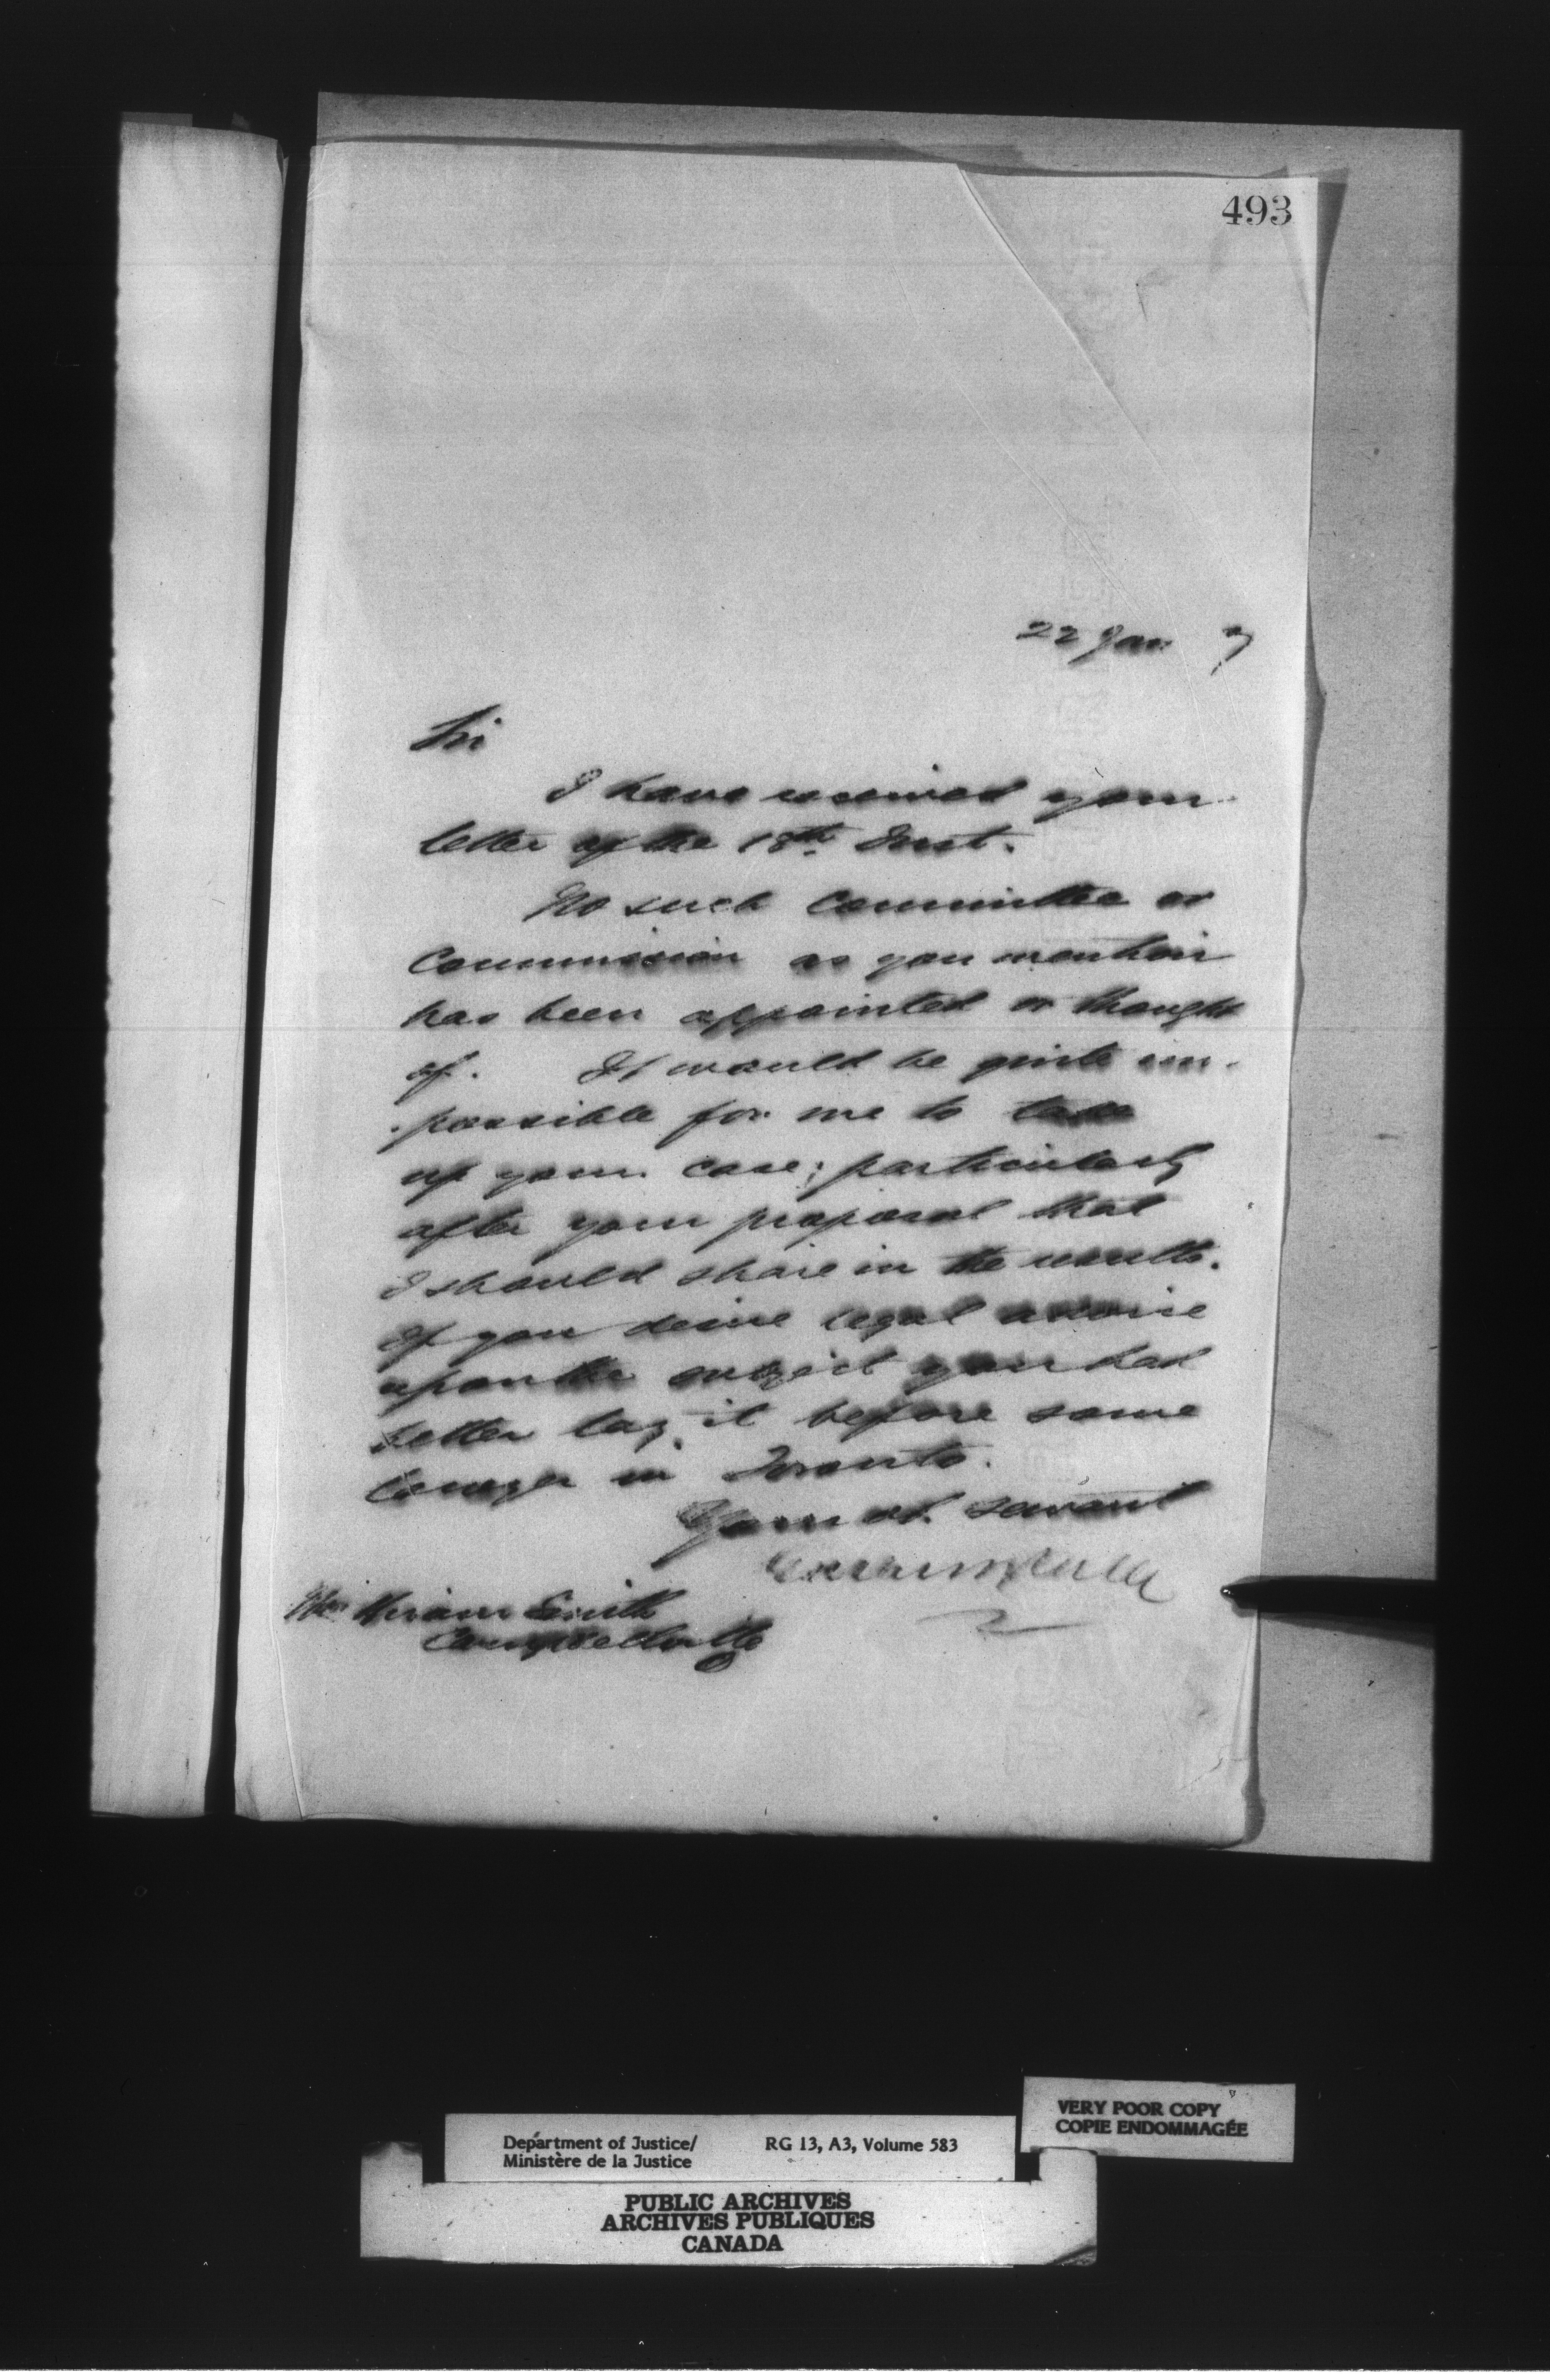 493
22 Jan 7
Sir
I have received your
letter of the 18th Inst.
No such Committee or
Commission as you mention
has been appointed or thought
of. It would be quite im-
possible for me to take
up your case; particularly
after your proposal that
I should share in the results.
If you desire legal advice
upon the subject you had
better lay it before some
lawyer in Toronto.
Your ob. servant
Hiram Smith
Campbellville
VERY POOR COPY
COPIE ENDOMMAGÉE
Department of Justice/ RG 13, A3, Volume 583
Ministère de la Justice
PUBLIC ARCHIVES
ARCHIVES PUBLIQUES
CANADA